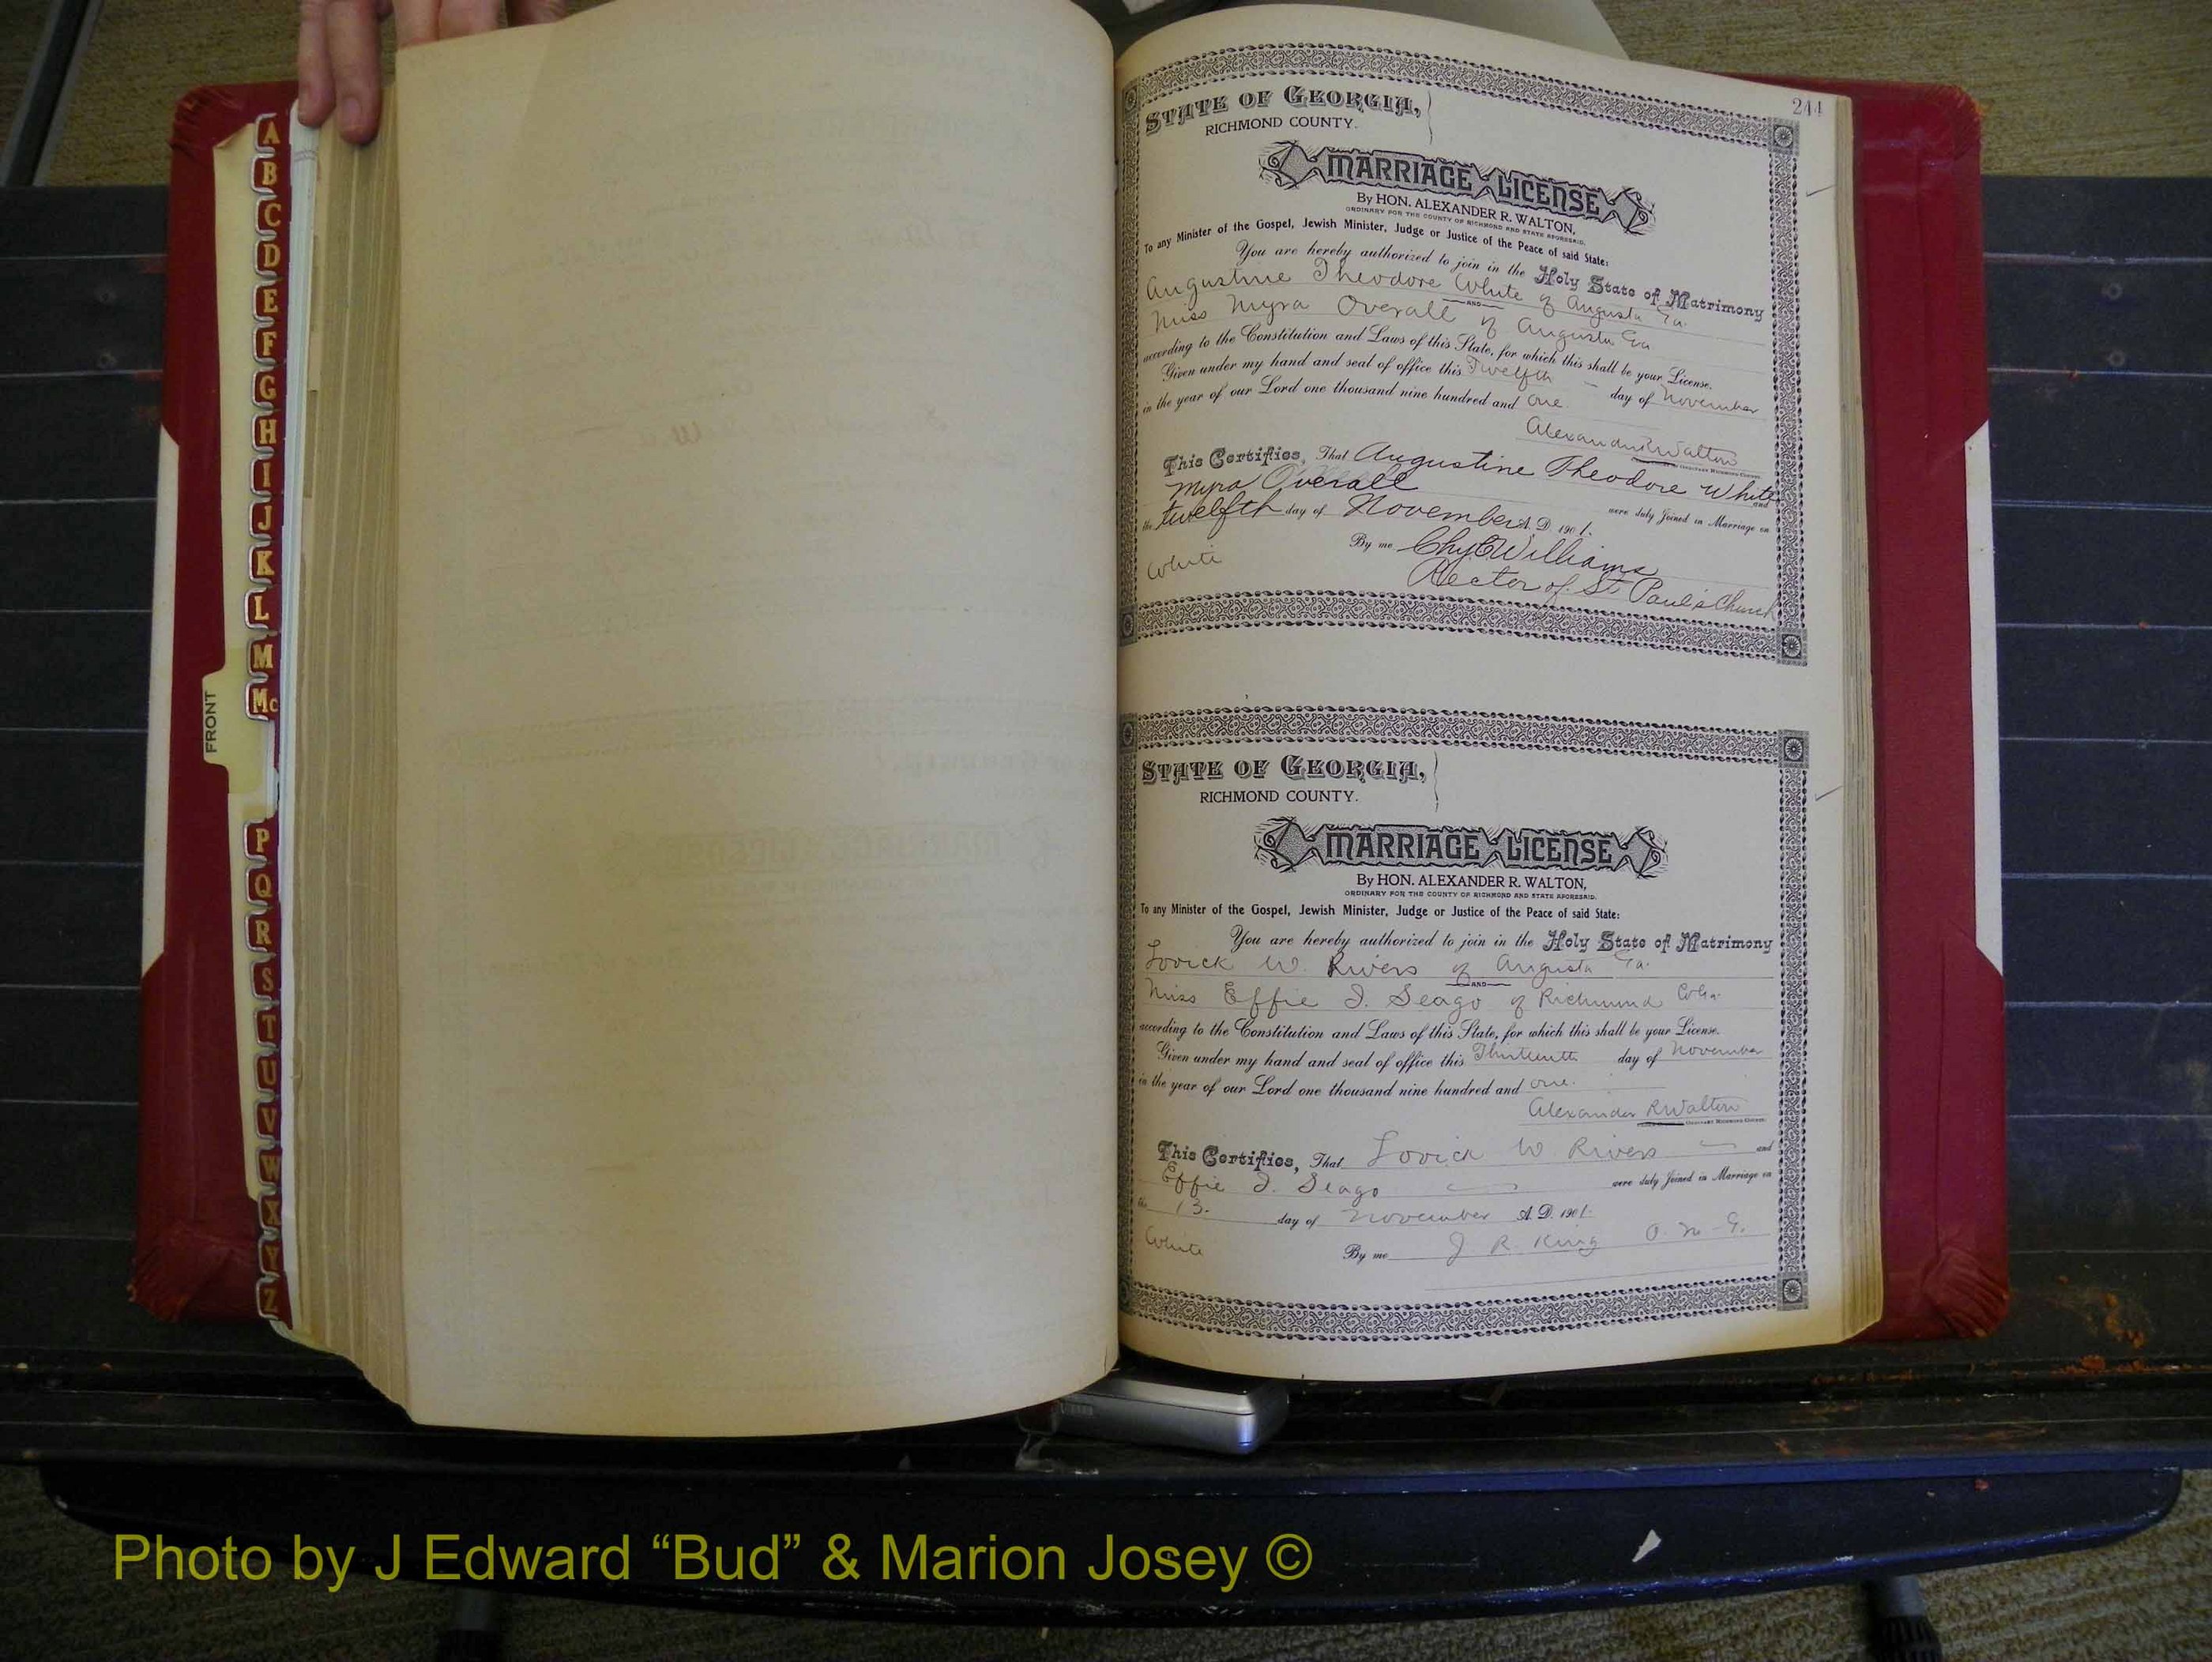 A
B
C
D
E
F
G
H
I
J
K
L
M
Mc
FRONT
P
Q
R
S
T
U
V
W
X
Y
Z
244
STATE OF GEORGIA,
RICHMOND COUNTY.
MARRIAGE LICENSE
By HON. ALEXANDER R. WALTON,
ORDINARY FOR THE COUNTY OF RICHMOND AND STATE AFORESAID.
To any Minister of the Gospel, Jewish Minister, Judge or Justice of the Peace of said State:
You are hereby authorized to join in the Holy State of Matrimony
Augustine Theodore White of Augusta Ga.
AND
Miss Myra Overall of Augusta Ga
according to the Constitution and Laws of this State, for which this shall be your License.
Given under my hand and seal of office this Twelfth day of November
in the year of our Lord one thousand nine hundred and one
Alexander R Walton
ORDINARY RICHMOND COUNTY.
This Certifies, That Augustine Theodore White and
Myra Overall were duly Joined in Marriage on
the twelfth day of November A. D. 1901.
White By me Chas C Williams
Rector of St Paul's Church
STATE OF GEORGIA,
RICHMOND COUNTY.
MARRIAGE LICENSE
By HON. ALEXANDER R. WALTON,
ORDINARY FOR THE COUNTY OF RICHMOND AND STATE AFORESAID.
To any Minister of the Gospel, Jewish Minister, Judge or Justice of the Peace of said State:
You are hereby authorized to join in the Holy State of Matrimony
Lovick W. Rivers of Augusta Ga.
AND
Miss Effie I. Seago of Richmond Co Ga
according to the Constitution and Laws of this State, for which this shall be your License.
Given under my hand and seal of office this Thirteenth day of November
in the year of our Lord one thousand nine hundred and one.
Alexander R Walton
ORDINARY RICHMOND COUNTY.
This Certifies, That Lovick W Rivers and
Effie I. Seago were duly Joined in Marriage on
the 13. day of November A. D. 1901.
White By me J. R. King O. M. G.
Photo by J Edward “Bud” & Marion Josey ©